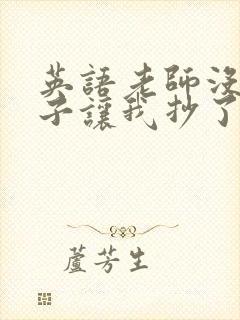 英語老師沒
子讓我抄了
蘆芳生